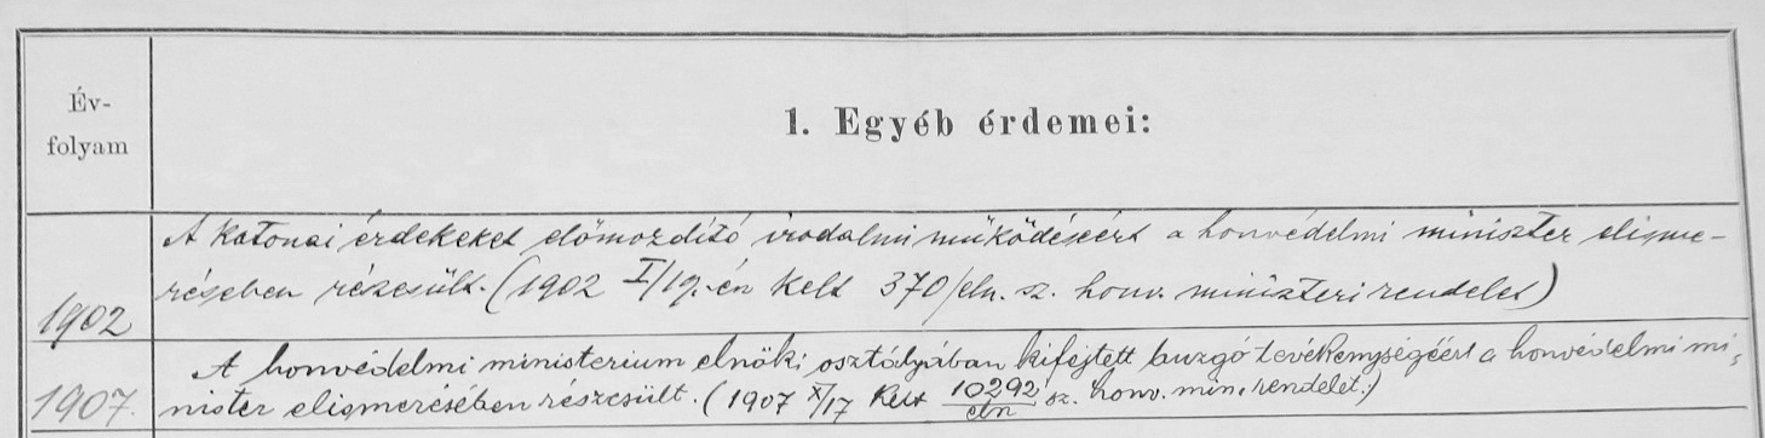 Év-
folyam
1. Egyéb érdemei:
A katonai érdekeket előmozdító irodalmi működéseért a honvédelmi miniszter elisme-
résében részesült. (1902 I/19.-én kelt 370/eln. sz. honv. miniszteri rendelet)
1902
A honvédelmi ministerium elnöki osztályában kifejtett buzgó tevékenységéért a honvédelmi mi-
nister elismerésében részesült. (1907 X/17 kelt 10292/eln sz. honv. min. rendelet.)
1907.